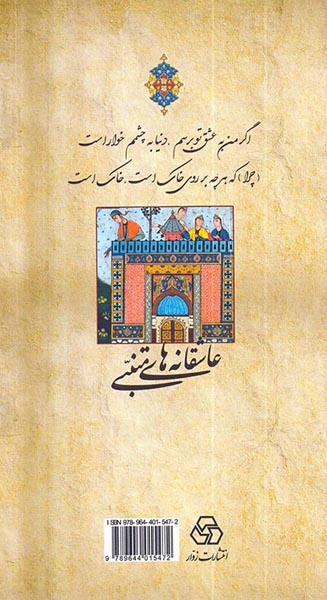 اگر من به عشق تو برسم ، دنیا به چشمم خوار است
(چرا) که هر چه بر روی خاک است ، خاک است
عاشقانه های متنبّی
ISBN 978-964-401-547-2
9 789644 015472
انتشارات زوّار